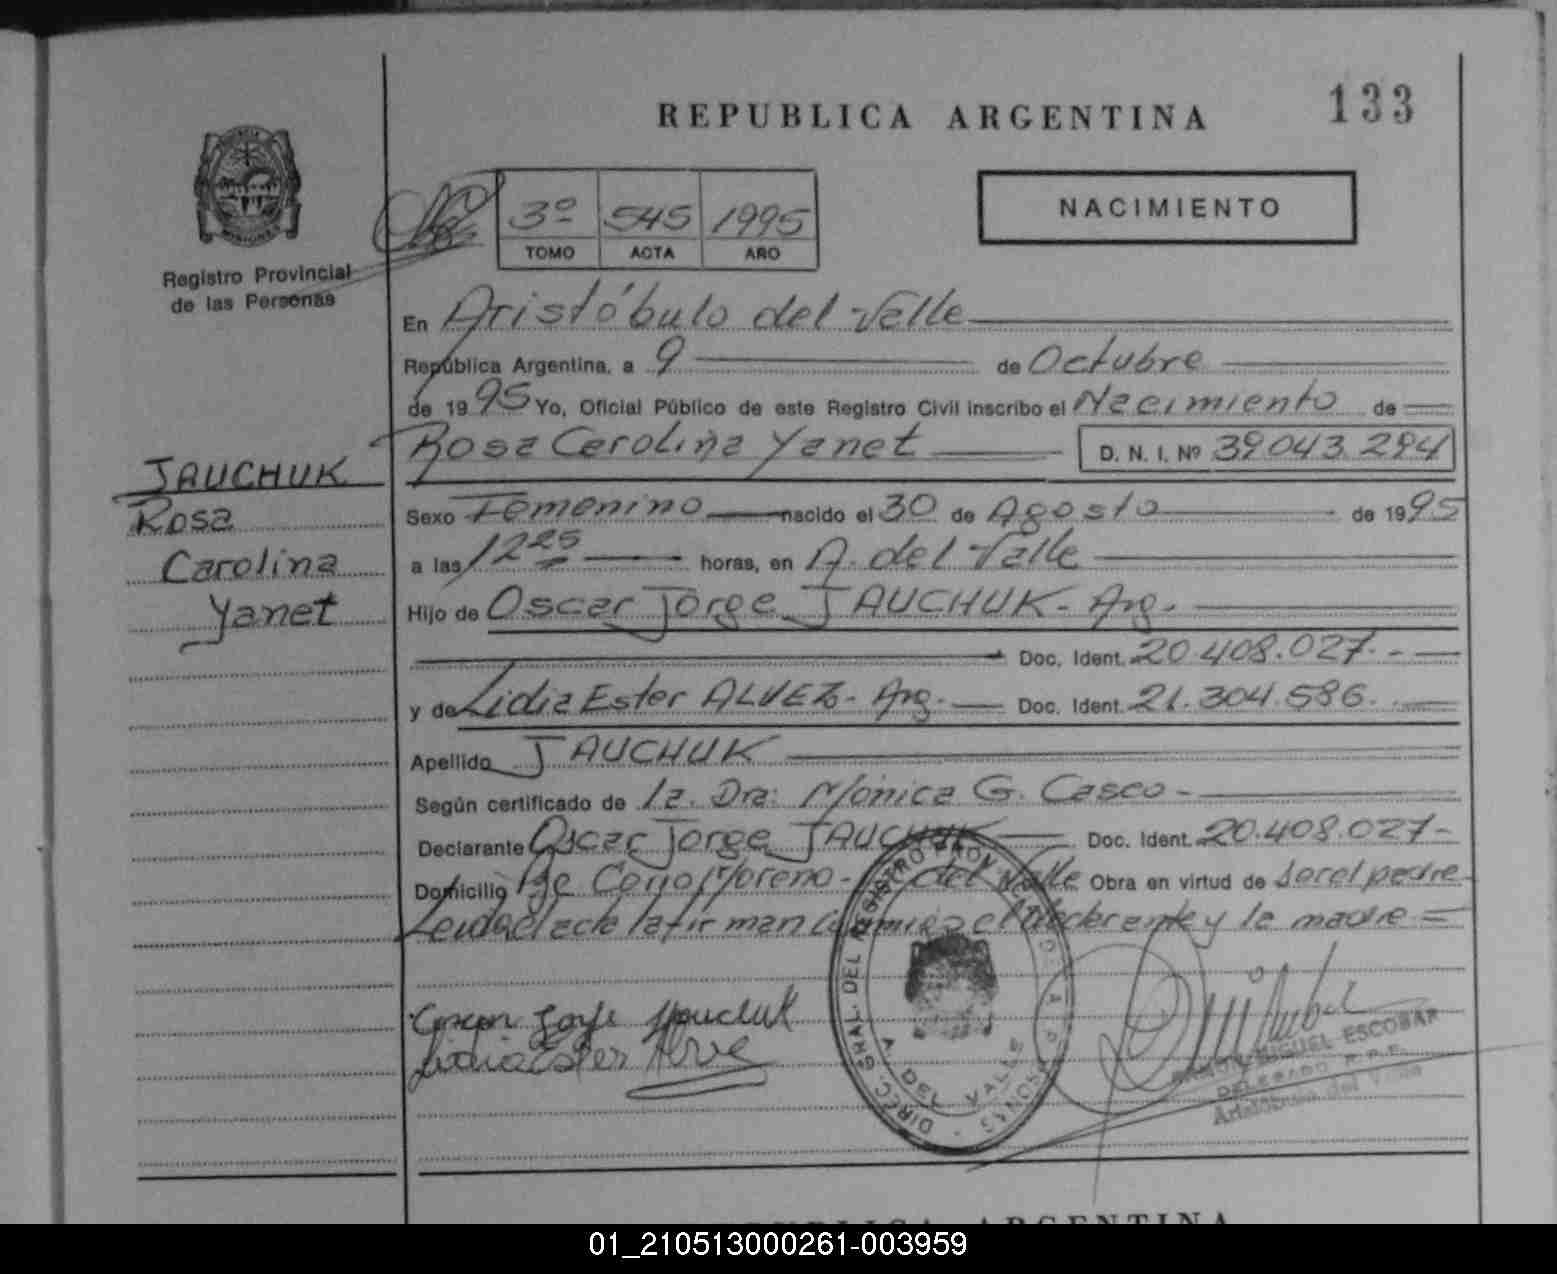 REPUBLICA ARGENTINA
133
MISIONES
Registro Provincial
de las Personas
3º 545 1995
TOMO ACTA AÑO
NACIMIENTO
En Aristóbulo del Valle
República Argentina, a 9 de Octubre
de 1995 Yo, Oficial Público de este Registro Civil inscribo el Nacimiento de
Rosa Carolina Yanet D. N. I. Nº 39.043.294
JAUCHUK
Rosa
Carolina
Yanet
Sexo Femenino nacido el 30 de Agosto de 1995
a las 12 25 horas, en A. del Valle
Hijo de Oscar Jorge JAUCHUK - Arg.-
Doc. Ident. 20.408.027.-
y de Lidia Ester ALVEZ - Arg.- Doc. Ident. 21.304.586.
Apellido JAUCHUK
Según certificado de la Dra. Mónica G. Casco -
Declarante Oscar Jorge JAUCHUK Doc. Ident. 20.408.027-
Domicilio Moreno - del Valle Obra en virtud de ser el padre
Leida el acta la firman conmigo el declarante y la madre =
Lidia Ester
DIREC. GRAL. DEL REGISTRO PROV. DE LAS PERSONAS - A. DEL VALLE
RAMON MIGUEL ESCOBAR
DELEGADO R.P.P.
Aristóbulo del Valle
REPUBLICA ARGENTINA
01_210513000261-003959